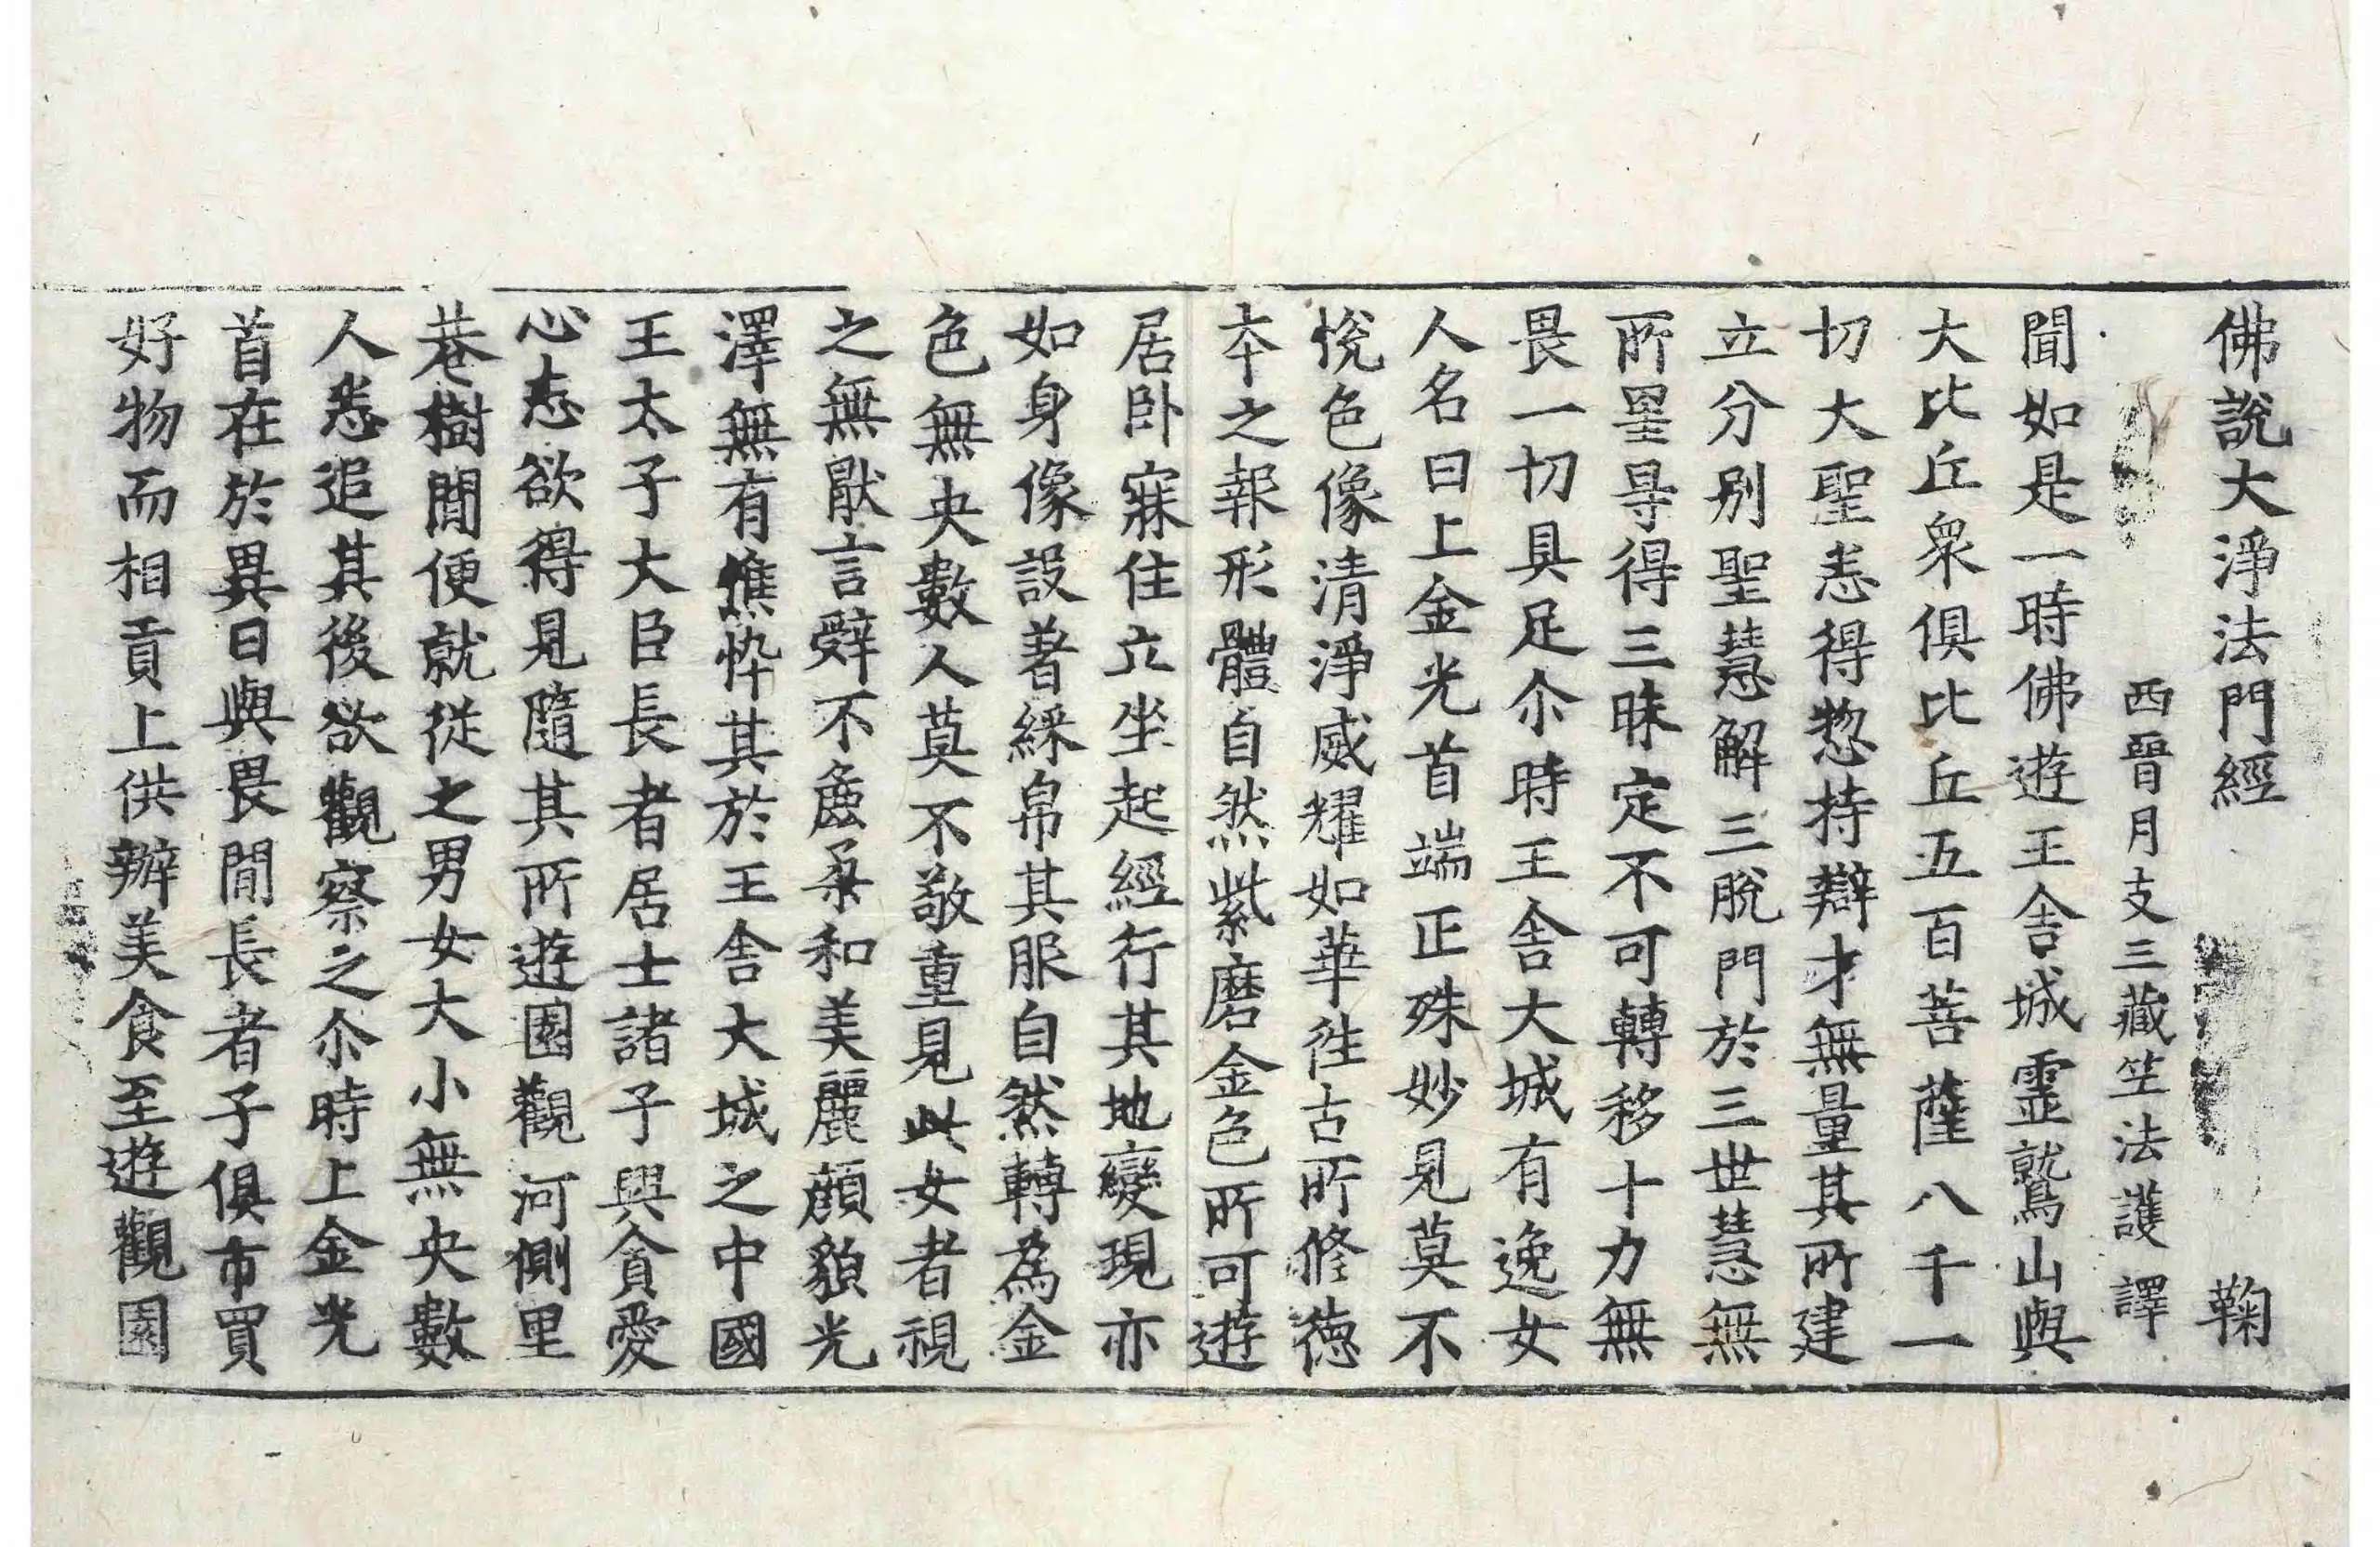 佛說大淨法門經 鞠
西晉月支三藏竺法護 譯
聞如是一時佛遊王舍城靈鷲山與
大比丘衆俱比丘五百菩薩八千一
切大聖悉得惣持辯才無量其所建
立分別聖慧解三脫門於三世慧無
所罣㝵得三昧定不可轉移十力無
畏一切具足尒時王舍大城有逸女
人名曰上金光首端正殊妙見莫不
悅色像清淨威耀如華徃古所修德
夲之報形體自然紫磨金色所可遊
居卧寐住立坐起經行其地變現亦
如身像設著綵帛其服自然轉為金
色無央數人莫不敬重見此女者視
之無猒言辤不麁柔和美麗顏貌光
澤無有憔悴其於王舍大城之中國
王太子大臣長者居士諸子興貪愛
心悉欲得見隨其所遊園觀河側里
巷樹間便就從之男女大小無央數
人悉追其後欲觀察之尒時上金光
首在於異日與畏間長者子俱市買
好物而相貢上供辦美食至遊觀園